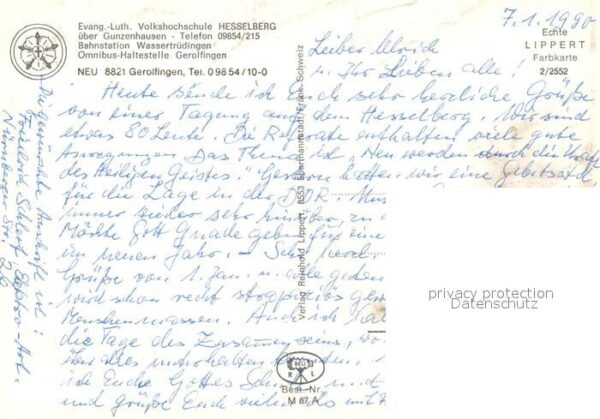 Evang.-Luth. Volkshochschule HESSELBERG
über Gunzenhausen - Telefon 09854/215
Bahnstation Wassertrüdingen
Omnibus-Haltestelle Gerolfingen
NEU 8821 Gerolfingen, Tel. 09854/10-0
7.1.1990
Echte
LIPPERT
Farbkarte
2/2552
Lieber
u. Ihr Lieben alle!
Heute sende ich Euch sehr herzliche Grüße
von einer Tagung auf dem Hesselberg. Wir sind
etwa 80 Leute. Die Referate enthalten viele gute
Anregungen. Das Thema ist "Neu werden durch die Kraft
des Heiligen Geistes." Gestern hatten wir eine Gebetszeit
für die Lage in der DDR.
immer wieder sehr
Möchte Gott Gnade geben für eine
im neuen Jahr. -
Grüße vom 1. Jan. u. alle guten
wird schon recht strapaziös
Menschenmassen. Auch ich
die Tage des Zusammenseins, wo
über alles unterhalten
ich Ende Gottes
und Grüße Euch
Die gewünschte Anschrift ist:
Friedrich
Nürnberger Str.
Verlag Reinhold Lippert, 8553 Ebermannstadt/Fränk. Schweiz
R L
Best.-Nr.
M 67 A
privacy protection
Datenschutz